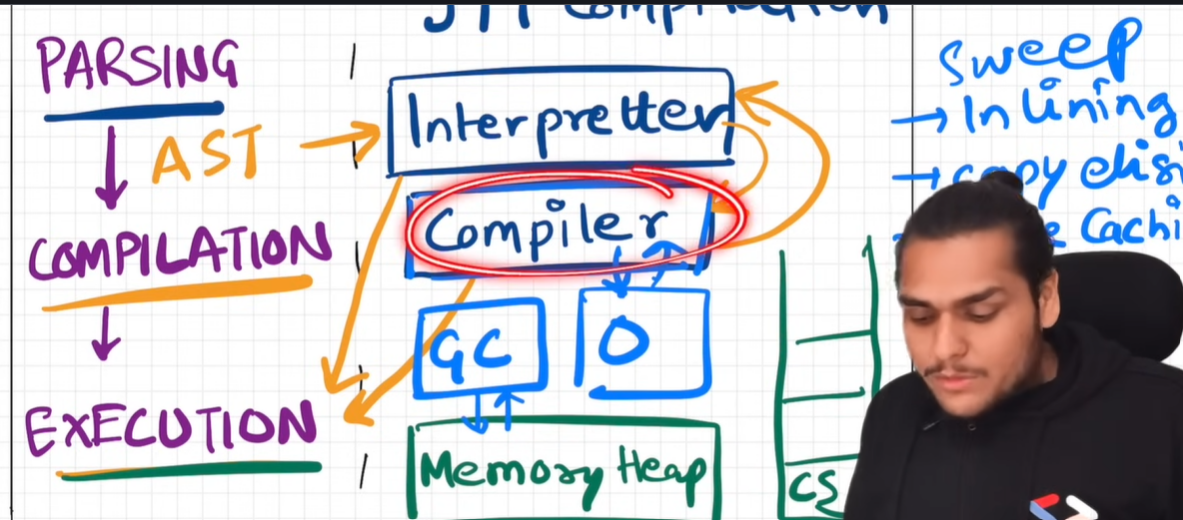 JIT Compilation
PARSING
AST
COMPILATION
EXECUTION
Interpretter
Compiler
GC
O
Memory Heap
CS
Sweep
→ Inlining
→ copy elisi
Cachi